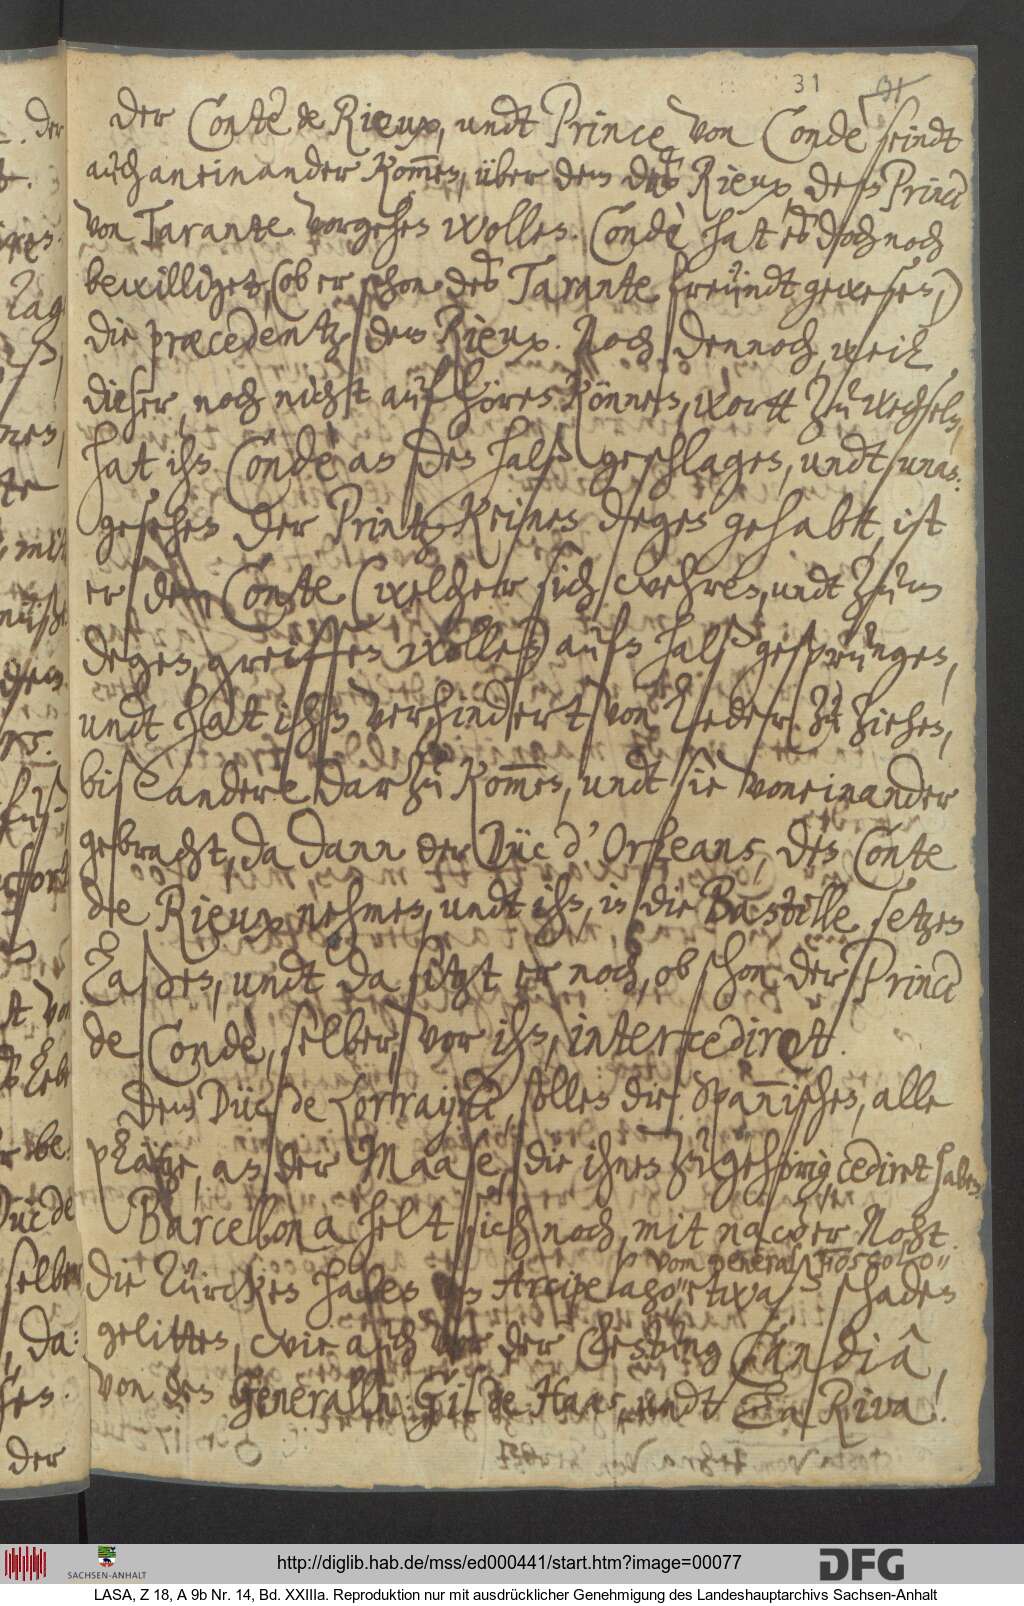 31
der Conte de Rieux, undt Prince von Condè seindt
auch aneinander kom̄en, über dem das Rieux, dem Princè
von Tarante vorgehen wollen. Condè hat es doch noch
bewilliget, (ob er schon des Tarante freündt gewesen,)
die præcedentz dem Rieux. Noch dennoch, weil
dieser, noch nicht aufhören können, wortt zu wechseln,
hat ihn Condè an den halß geschlagen, undt unan:
gesehen der Printz keinen degen gehabtt, ist
er dem Conte (welcher sich wehren, undt zum
degen, greiffen wollen) an halß gesprungen,
undt hat ihn verhindert von leder zu ziehen,
biß andere darzu kom̄en, undt sie voneinander
gebracht, da dann der Düc d'Orleans, den Conte
de Rieux nehmen, undt ihn, in die Bastille setzen
laßen, undt da sitzt er noch, ob schon der Princè
de Condè, selber, vor ihn, intercediret.
Dem Düc de Lorrayne, sollen die Span̄ischen, alle
plätze, an der Maase, die ihnen zugehörig cediret haben.
Barcellona helt sich noch, mit nacher Noht.
vom general Foscolo
die Türcken haben im Arcipelago, etwaß schaden
gelitten, wie auch vor der Vestung Candia,
von den Generalln: Gil de Haas, undt la Riva.

der
http://diglib.hab.de/mss/ed000441/start.htm?image=00077
SACHSEN-ANHALT
DFG
LASA, Z 18, A 9b Nr. 14, Bd. XXIIIa. Reproduktion nur mit ausdrücklicher Genehmigung des Landeshauptarchivs Sachsen-Anhalt